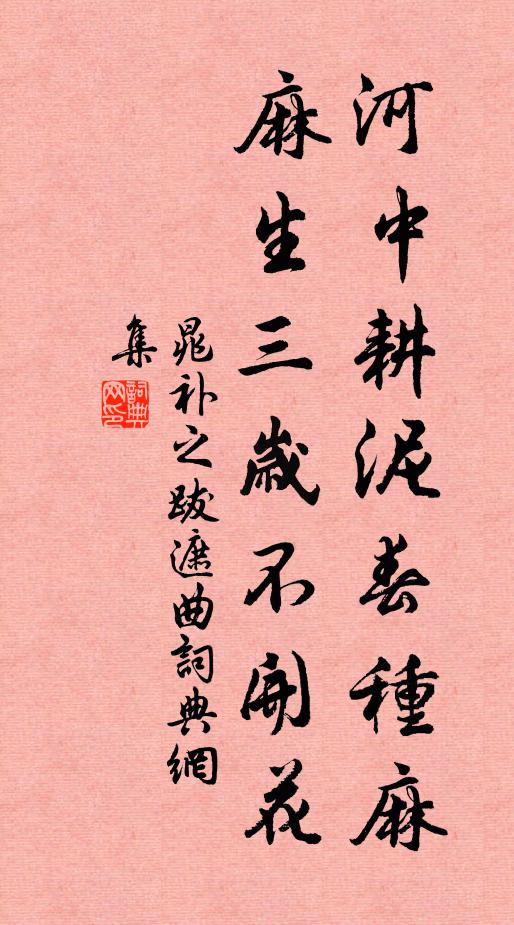 河中耕泥春種麻
麻生三歲不開花
晁补之跋遮曲詞典網
集
詞典网印